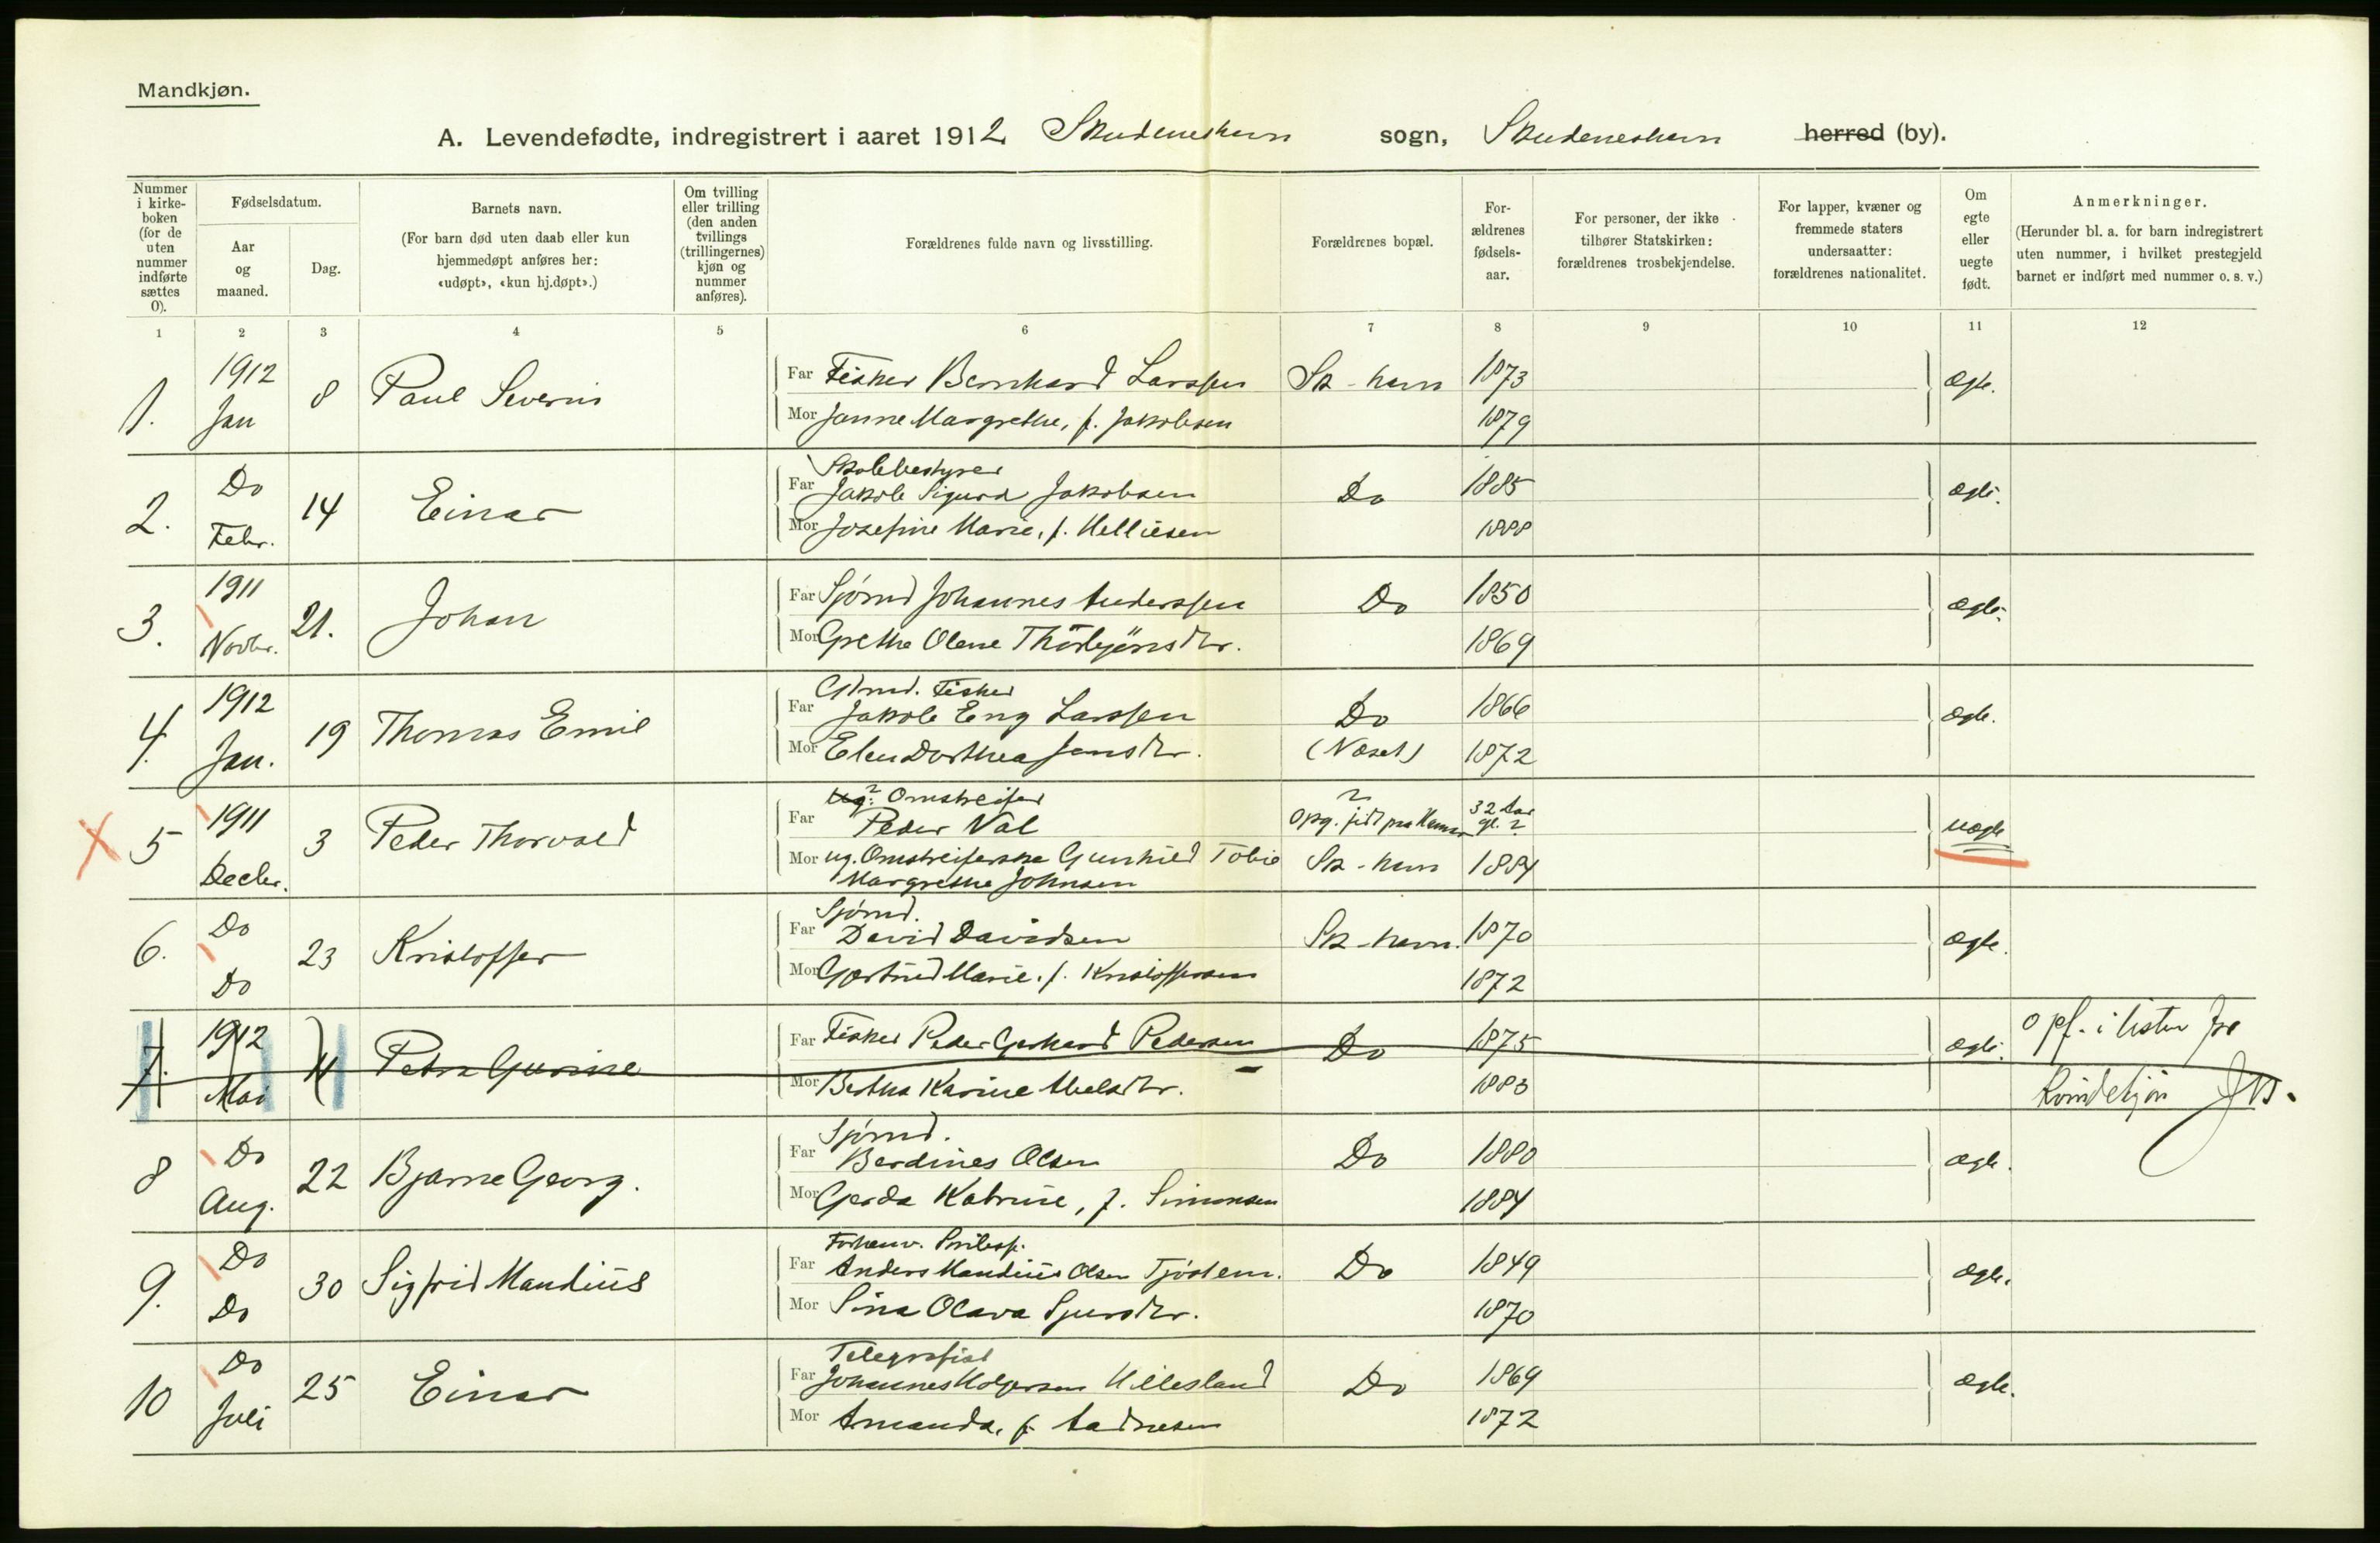 Mandkjøn.
A. Levendefødte, indregistrert i aaret 1912 Skudeneshavn sogn, Skudeneshavn herred (by).
Nummer i kirkeboken (for de uten nummer indførte sættes 0).
Fødselsdatum.
Aar og maaned.
Dag.
Barnets navn.
(For barn død uten daab eller kun hjemmedøpt anføres her: «udøpt», «kun hj.døpt».)
Om tvilling eller trilling (den anden tvillings (trillingernes) kjøn og nummer anføres).
Forældrenes fulde navn og livsstilling.
Forældrenes bopæl.
Forældrenes fødselsaar.
For personer, der ikke tilhører Statskirken: forældrenes trosbekjendelse.
For lapper, kvæner og fremmede staters undersaatter: forældrenes nationalitet.
Om egte eller uegte født.
Anmerkninger.
(Herunder bl. a. for barn indregistrert uten nummer, i hvilket prestegjeld barnet er indført med nummer o. s. v.)
1 2 3 4 5 6 7 8 9 10 11 12
1. 1912 Jan 8 Paul Severin
Far Fisker Bernhard Larssen Sk-havn 1873 ægte.
Mor Janne Margrethe, f. Jakobsen 1879
2. Do Febr. 14 Einar
Skolebestyrer
Far Jakob Sigurd Jakobsen Do 1885 ægte.
Mor Josefine Marie, f. Helliesen 1888
3. 1911 Novbr. 21. Johan
Far Sjømd Johannes Anderssen Do 1850 ægte.
Mor Grethe Olene Thorbjörnsdtr. 1869
4. 1912 Jan. 19 Thomas Emil
Gdmd. Fisker
Far Jakob Eng Larssen Do 1866 ægte.
Mor Elen Dorthea Jensdtr. (Næset) 1872
X 5 1911 Decbr. 3 Peder Thorvald
Ug: ? Omstreifer ? 32 Aar
Far Peder Val Opg. født paa Hamar gl. ? uægte
Mor ug. Omstreiferske Gunhild Tobie Sk-havn 1884
Margrethe Johnsen
6. Do Do 23 Kristoffer
Sjömd.
Far David Davidsen Sk-havn. 1870 ægte.
Mor Gjertrud Marie. f. Kristoffersen 1872
7. 1912 Mai 11 Petra Gurine
Far Fisker Peder Gerhard Pedersen Do 1875 ægte. Opf. i listen for
Mor Bertha Karine Abelsdtr. 1883 kvindekjøn
8 Do Aug. 22 Bjarne Georg.
Sjömd.
Far Berdines Olsen Do 1880 ægte.
Mor Gerda Katrine, f. Simonsen 1884
9. Do Do 30 Sigfrid Mandius
Forhenv.
Far Anders Mandius Olsen Tjöstem. Do 1849 ægte.
Mor Sina Olava Sjursdtr. 1870
10 Do Juli 25 Einar
Telegrafist
Far Johannes Holgersen Hillesland Do 1869 ægte.
Mor Amanda, f. Aadnesen 1872